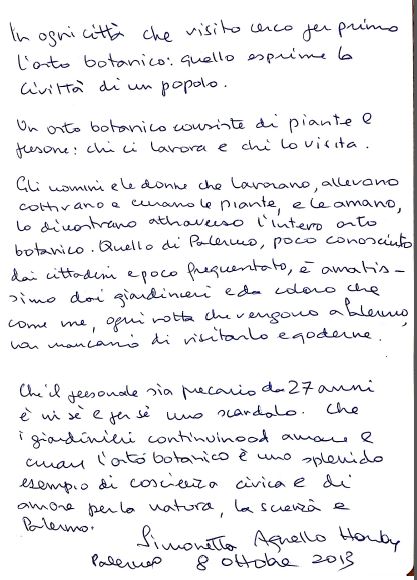 In ogni città che visito cerco per primo
l'orto botanico: quello esprime la
civiltà di un popolo.
Un orto botanico consiste di piante e
persone: chi ci lavora e chi lo visita.
Gli uomini e le donne che lavorano, allevano
coltivano e curano le piante, e le amano,
lo dimostrano attraverso l'intero orto
botanico. Quello di Palermo, poco conosciuto
dai cittadini e poco frequentato, è amatis-
simo dai giardinieri e da coloro che
come me, ogni volta che vengono a Palermo,
non mancano di visitarlo e goderne.
Che il personale sia precario da 27 anni
è in sè e per sè uno scandalo. Che
i giardinieri continuino ad amare e
curare l'orto botanico è uno splendido
esempio di coscienza civica e di
amore per la natura, la scienza e
Palermo.
Simonetta Agnello Hornby
Palermo 8 ottobre 2013